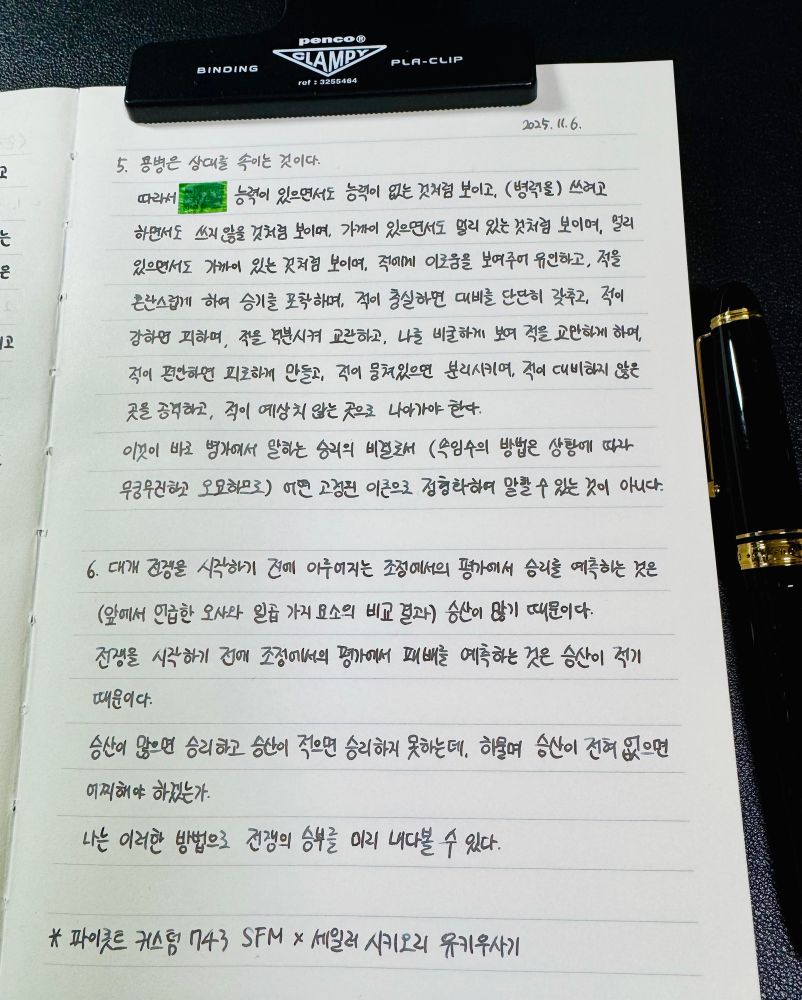 penco®
CLAMPY
BINDING
PLA-CLIP
ref : 3255464
2025. 11. 6.
5. 용병은 상대를 속이는 것이다.
따라서 능력이 있으면서도 능력이 없는 것처럼 보이고, (병력을) 쓰려고
하면서도 쓰지 않을 것처럼 보이며, 가까이 있으면서도 멀리 있는 것처럼 보이며, 멀리
있으면서도 가까이 있는 것처럼 보이며, 적에게 이로움을 보여주어 유인하고, 적을
혼란스럽게 하여 승기를 포착하며, 적이 충실하면 대비를 단단히 갖추고, 적이
강하면 피하며, 적을 격분시켜 교란하고, 나를 비굴하게 보여 적을 교만하게 하며,
적이 편안하면 피로하게 만들고, 적이 뭉쳐있으면 분리시키며, 적이 대비하지 않은
곳을 공격하고, 적이 예상치 않는 곳으로 나아가야 한다.
이것이 바로 병가에서 말하는 승리의 비결로서 (속임수의 방법은 상황에 따라
무궁무진하고 오묘하므로) 어떤 고정된 이론으로 정형화하여 말할 수 있는 것이 아니다.
6. 대개 전쟁을 시작하기 전에 이루어지는 조정에서의 평가에서 승리를 예측하는 것은
(앞에서 언급한 오사와 일곱 가지 요소의 비교 결과) 승산이 많기 때문이다.
전쟁을 시작하기 전에 조정에서의 평가에서 패배를 예측하는 것은 승산이 적기
때문이다.
승산이 많으면 승리하고 승산이 적으면 승리하지 못하는데, 하물며 승산이 전혀 없으면
어찌해야 하겠는가.
나는 이러한 방법으로 전쟁의 승부를 미리 내다볼 수 있다.
* 파이롯트 커스텀 743 SFM × 세일러 시키오리 유키우사기